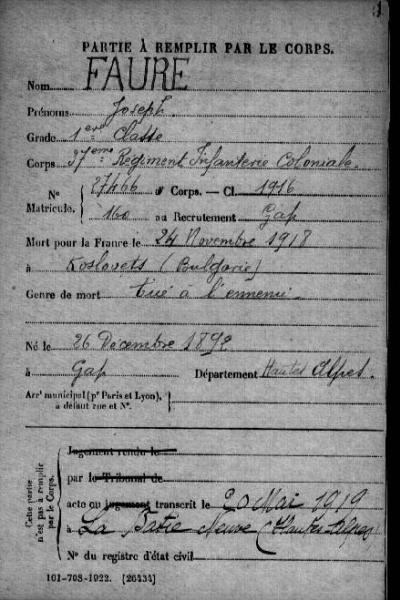 PARTIE À REMPLIR PAR LE CORPS.
Nom FAURE
Prénoms Joseph.
Grade 1ere Classe
Corps 37eme Régiment Infanterie Coloniale.
N° Matricule. { 27466 au Corps. — Cl. 1916
160 au Recrutement Gap
Mort pour la France le 24 Novembre 1918
à Koslovets (Bulgarie)
Genre de mort Tué à l'ennemi.
Né le 26 Decembre 1892
à Gap Département Hautes Alpes.
Arrt municipal (pr Paris et Lyon),
à défaut rue et N°.
Cette partie n'est pas à remplir par le Corps.
Jugement rendu le
par le Tribunal de
acte ou jugement transcrit le 20 Mai 1919
à La Batie Neuve (Hautes Alpes)
N° du registre d'état civil
101-708-1922. [26434]